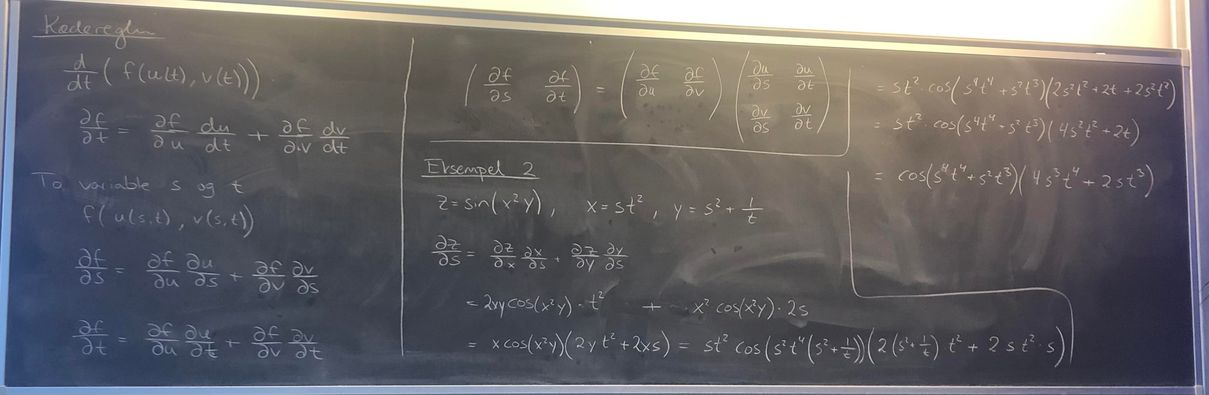 Kædereglen
d/dt ( f(u(t), v(t)))
∂f/∂t = ∂f/∂u du/dt + ∂f/∂v dv/dt
To variable s og t
f(u(s,t), v(s,t))
∂f/∂s = ∂f/∂u ∂u/∂s + ∂f/∂v ∂v/∂s
∂f/∂t = ∂f/∂u ∂u/∂t + ∂f/∂v ∂v/∂t
(∂f/∂s ∂f/∂t) = (∂f/∂u ∂f/∂v) (∂u/∂s ∂u/∂t
∂v/∂s ∂v/∂t)
Eksempel 2
z = sin(x²y), x = st², y = s² + 1/t
∂z/∂s = ∂z/∂x ∂x/∂s + ∂z/∂y ∂y/∂s
= 2xy cos(x²y) · t² + x² cos(x²y) · 2s
= x cos(x²y)(2y t² + 2xs) = st² cos(s²t⁴(s² + 1/t))(2(s² + 1/t) t² + 2st² · s)
= st² · cos(s⁴t⁴ + s²t³)(2s²t² + 2t + 2s²t²)
= st² · cos(s⁴t⁴ + s²t³)(4s²t² + 2t)
= cos(s⁴t⁴ + s²t³)(4s³t⁴ + 2st³)